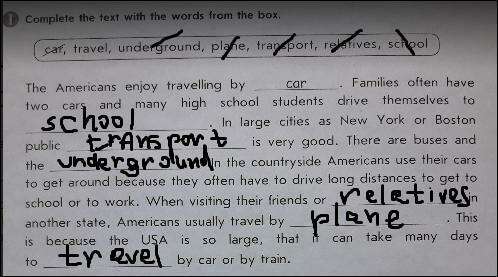 Complete the text with the words from the box.
car, travel, underground, plane, transport, relatives, school
The Americans enjoy travelling by car . Families often have
two cars and many high school students drive themselves to
school . In large cities as New York or Boston
public transport is very good. There are buses and
the underground In the countryside Americans use their cars
to get around because they often have to drive long distances to get to
school or to work. When visiting their friends or relatives in
another state, Americans usually travel by plane . This
is because the USA is so large, that it can take many days
to travel by car or by train.